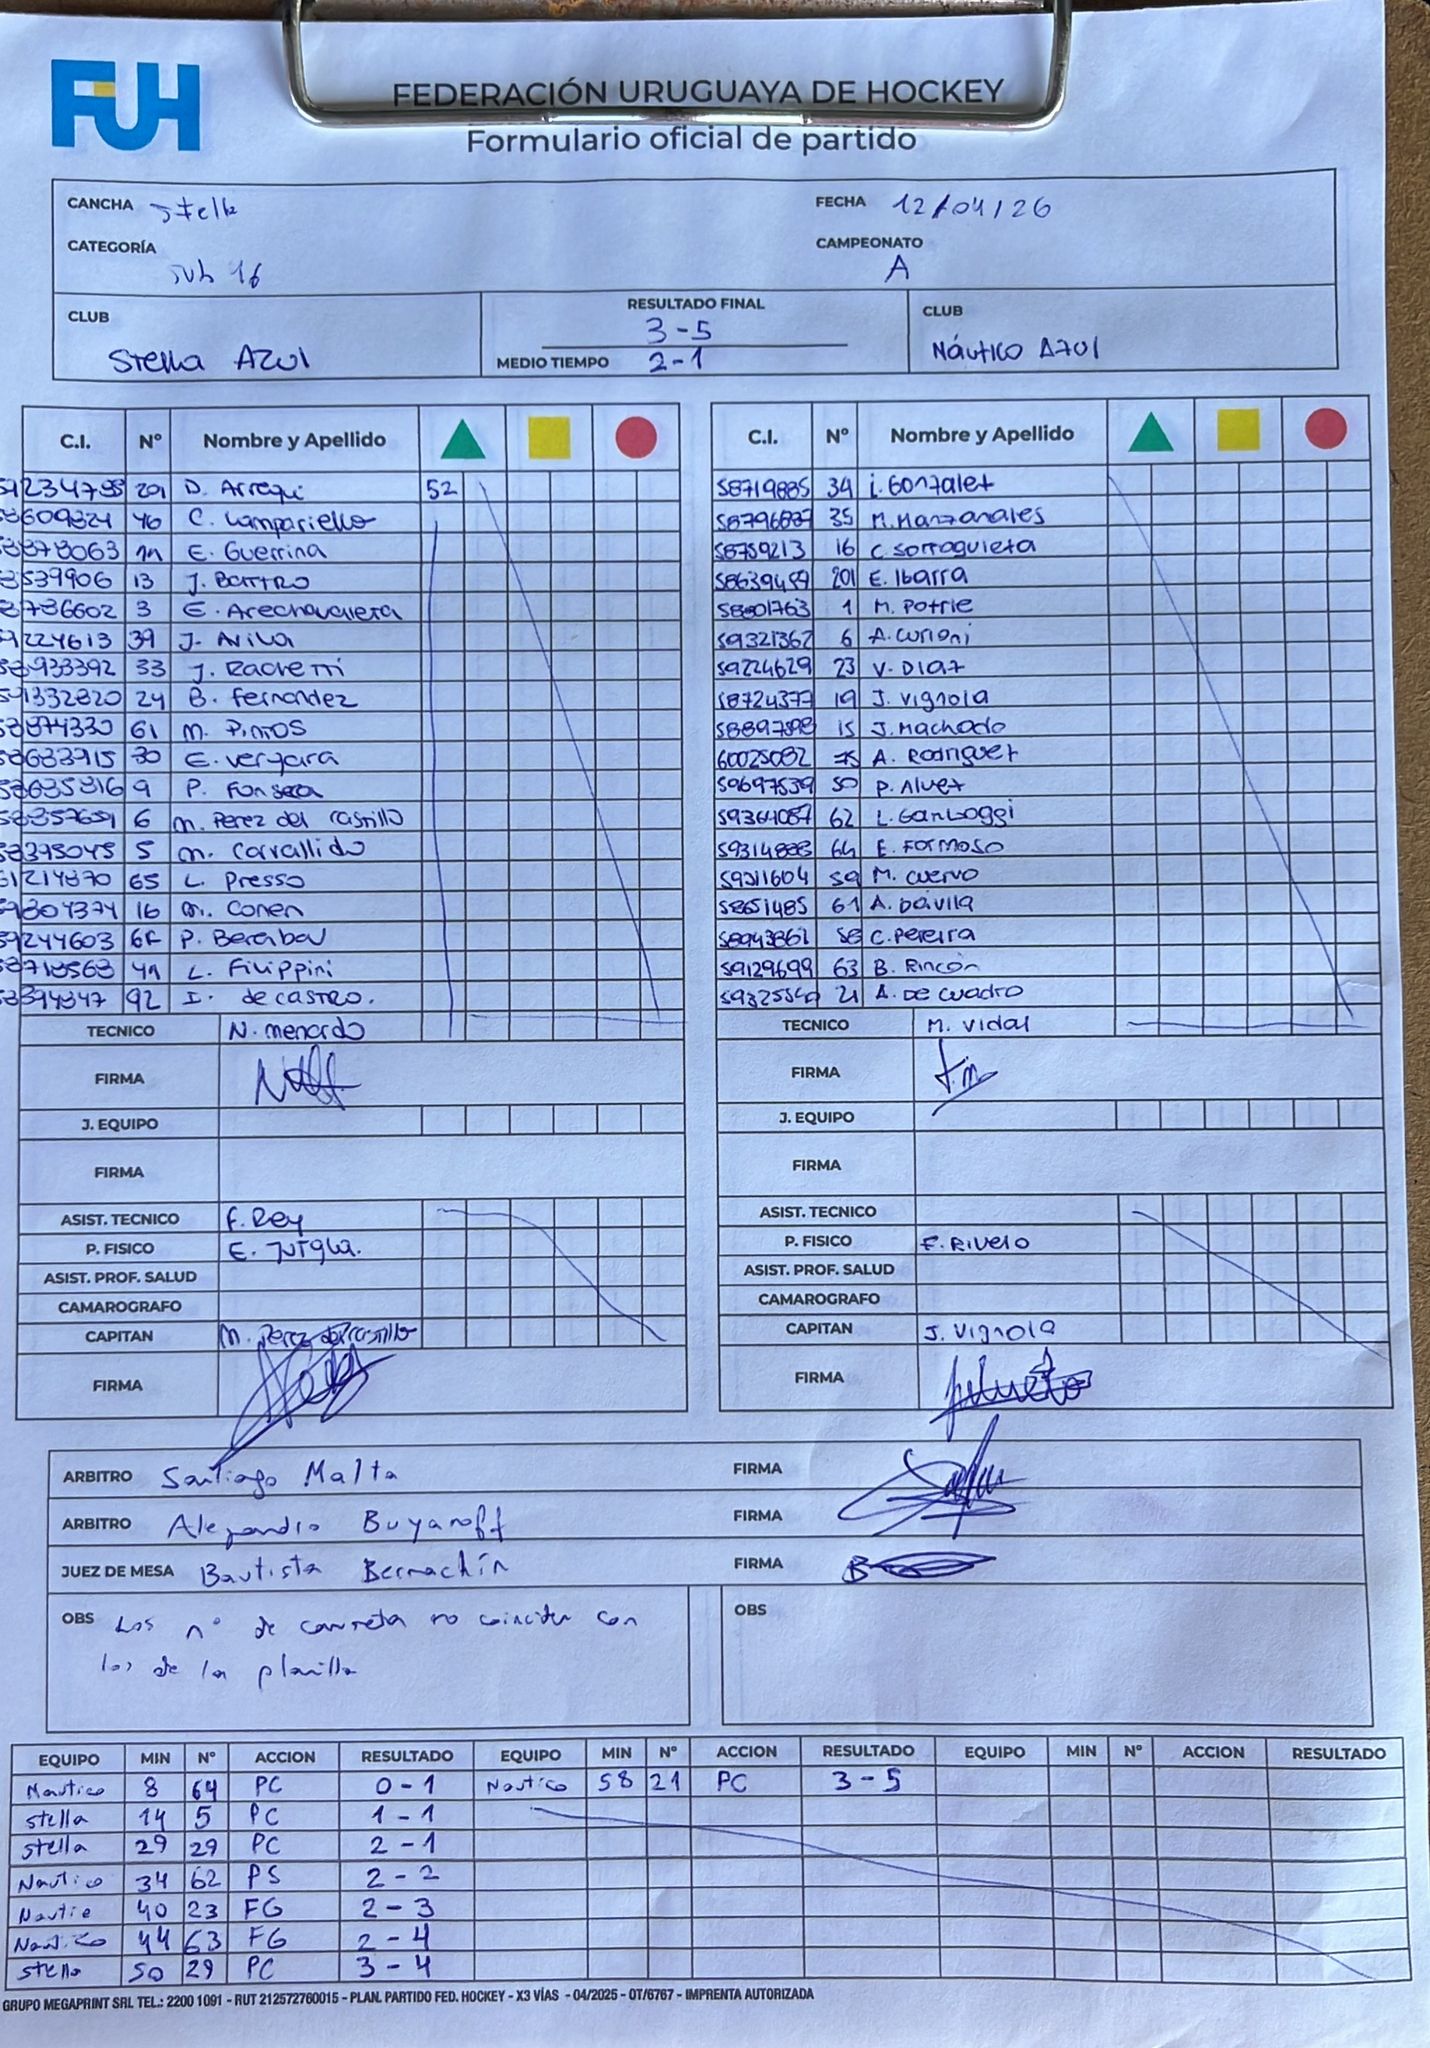 FUH
FEDERACIÓN URUGUAYA DE HOCKEY
Formulario oficial de partido
CANCHA Stella FECHA 12/04/26
CATEGORÍA Sub 16 CAMPEONATO A
CLUB Stella AZUl RESULTADO FINAL 3-5 CLUB Náutico Azul
MEDIO TIEMPO 2-1
C.I. Nº Nombre y Apellido C.I. Nº Nombre y Apellido
D. Arregi 52 58719885 34 i. Gonzalez
C. Lampariello 35 M. Manzanares
E. Guerrina 58759213 16 C. Sorraguieta
13 J. Barrro 201 E. Ibarra
3 E. Arechavaleta 58801763 1 M. Pottie
39 J. Avila 59321362 6 A. Curioni
33 J. Rachetti 59224629 23 V. Diaz
24 B. fernandez 58724377 19 J. Vignola
61 M. Pintos 15 J. Machado
30 E. vergara 60025082 75 A. Rodriguez
9 P. Fonseca 59697539 50 P. Alvez
6 M. Perez del Castillo 59364087 62 L. Garboggi
5 M. Carvallido 59314888 64 E. Formoso
65 L. Presso 59211604 59 M. Cuervo
16 M. Conen 58651485 61 A. Dávila
P. Bereibau 58943861 58 C. Pereira
L. Filippini 59129699 63 B. Rincón
92 I. de CASTRO. 21 A. De Cuadro
TECNICO N. menardo TECNICO M. Vidal
FIRMA FIRMA
J. EQUIPO J. EQUIPO
FIRMA FIRMA
ASIST. TECNICO F. Rey ASIST. TECNICO
P. FISICO E. P. FISICO F. Rivero
ASIST. PROF. SALUD ASIST. PROF. SALUD
CAMAROGRAFO CAMAROGRAFO
CAPITAN M. Perez del Castillo CAPITAN J. Vignola
FIRMA FIRMA
ARBITRO Santiago Malta FIRMA
ARBITRO Alejandro Buyanoff FIRMA
JUEZ DE MESA Bautista Bernachín FIRMA
OBS Los nº de camiseta no coinciden con OBS
los de la planilla
EQUIPO MIN Nº ACCION RESULTADO EQUIPO MIN Nº ACCION RESULTADO EQUIPO MIN Nº ACCION RESULTADO
Nautico 8 64 PC 0-1 Nautico 58 21 PC 3-5
stella 14 5 PC 1-1
stella 29 29 PC 2-1
Nautico 34 62 PS 2-2
Nautic 40 23 FG 2-3
Nautico 44 63 FG 2-4
stella 50 29 PC 3-4
GRUPO MEGAPRINT SRL TEL.: 2200 1091 - RUT 212572760015 - PLAN. PARTIDO FED. HOCKEY - X3 VÍAS - 04/2025 - OT/6767 - IMPRENTA AUTORIZADA